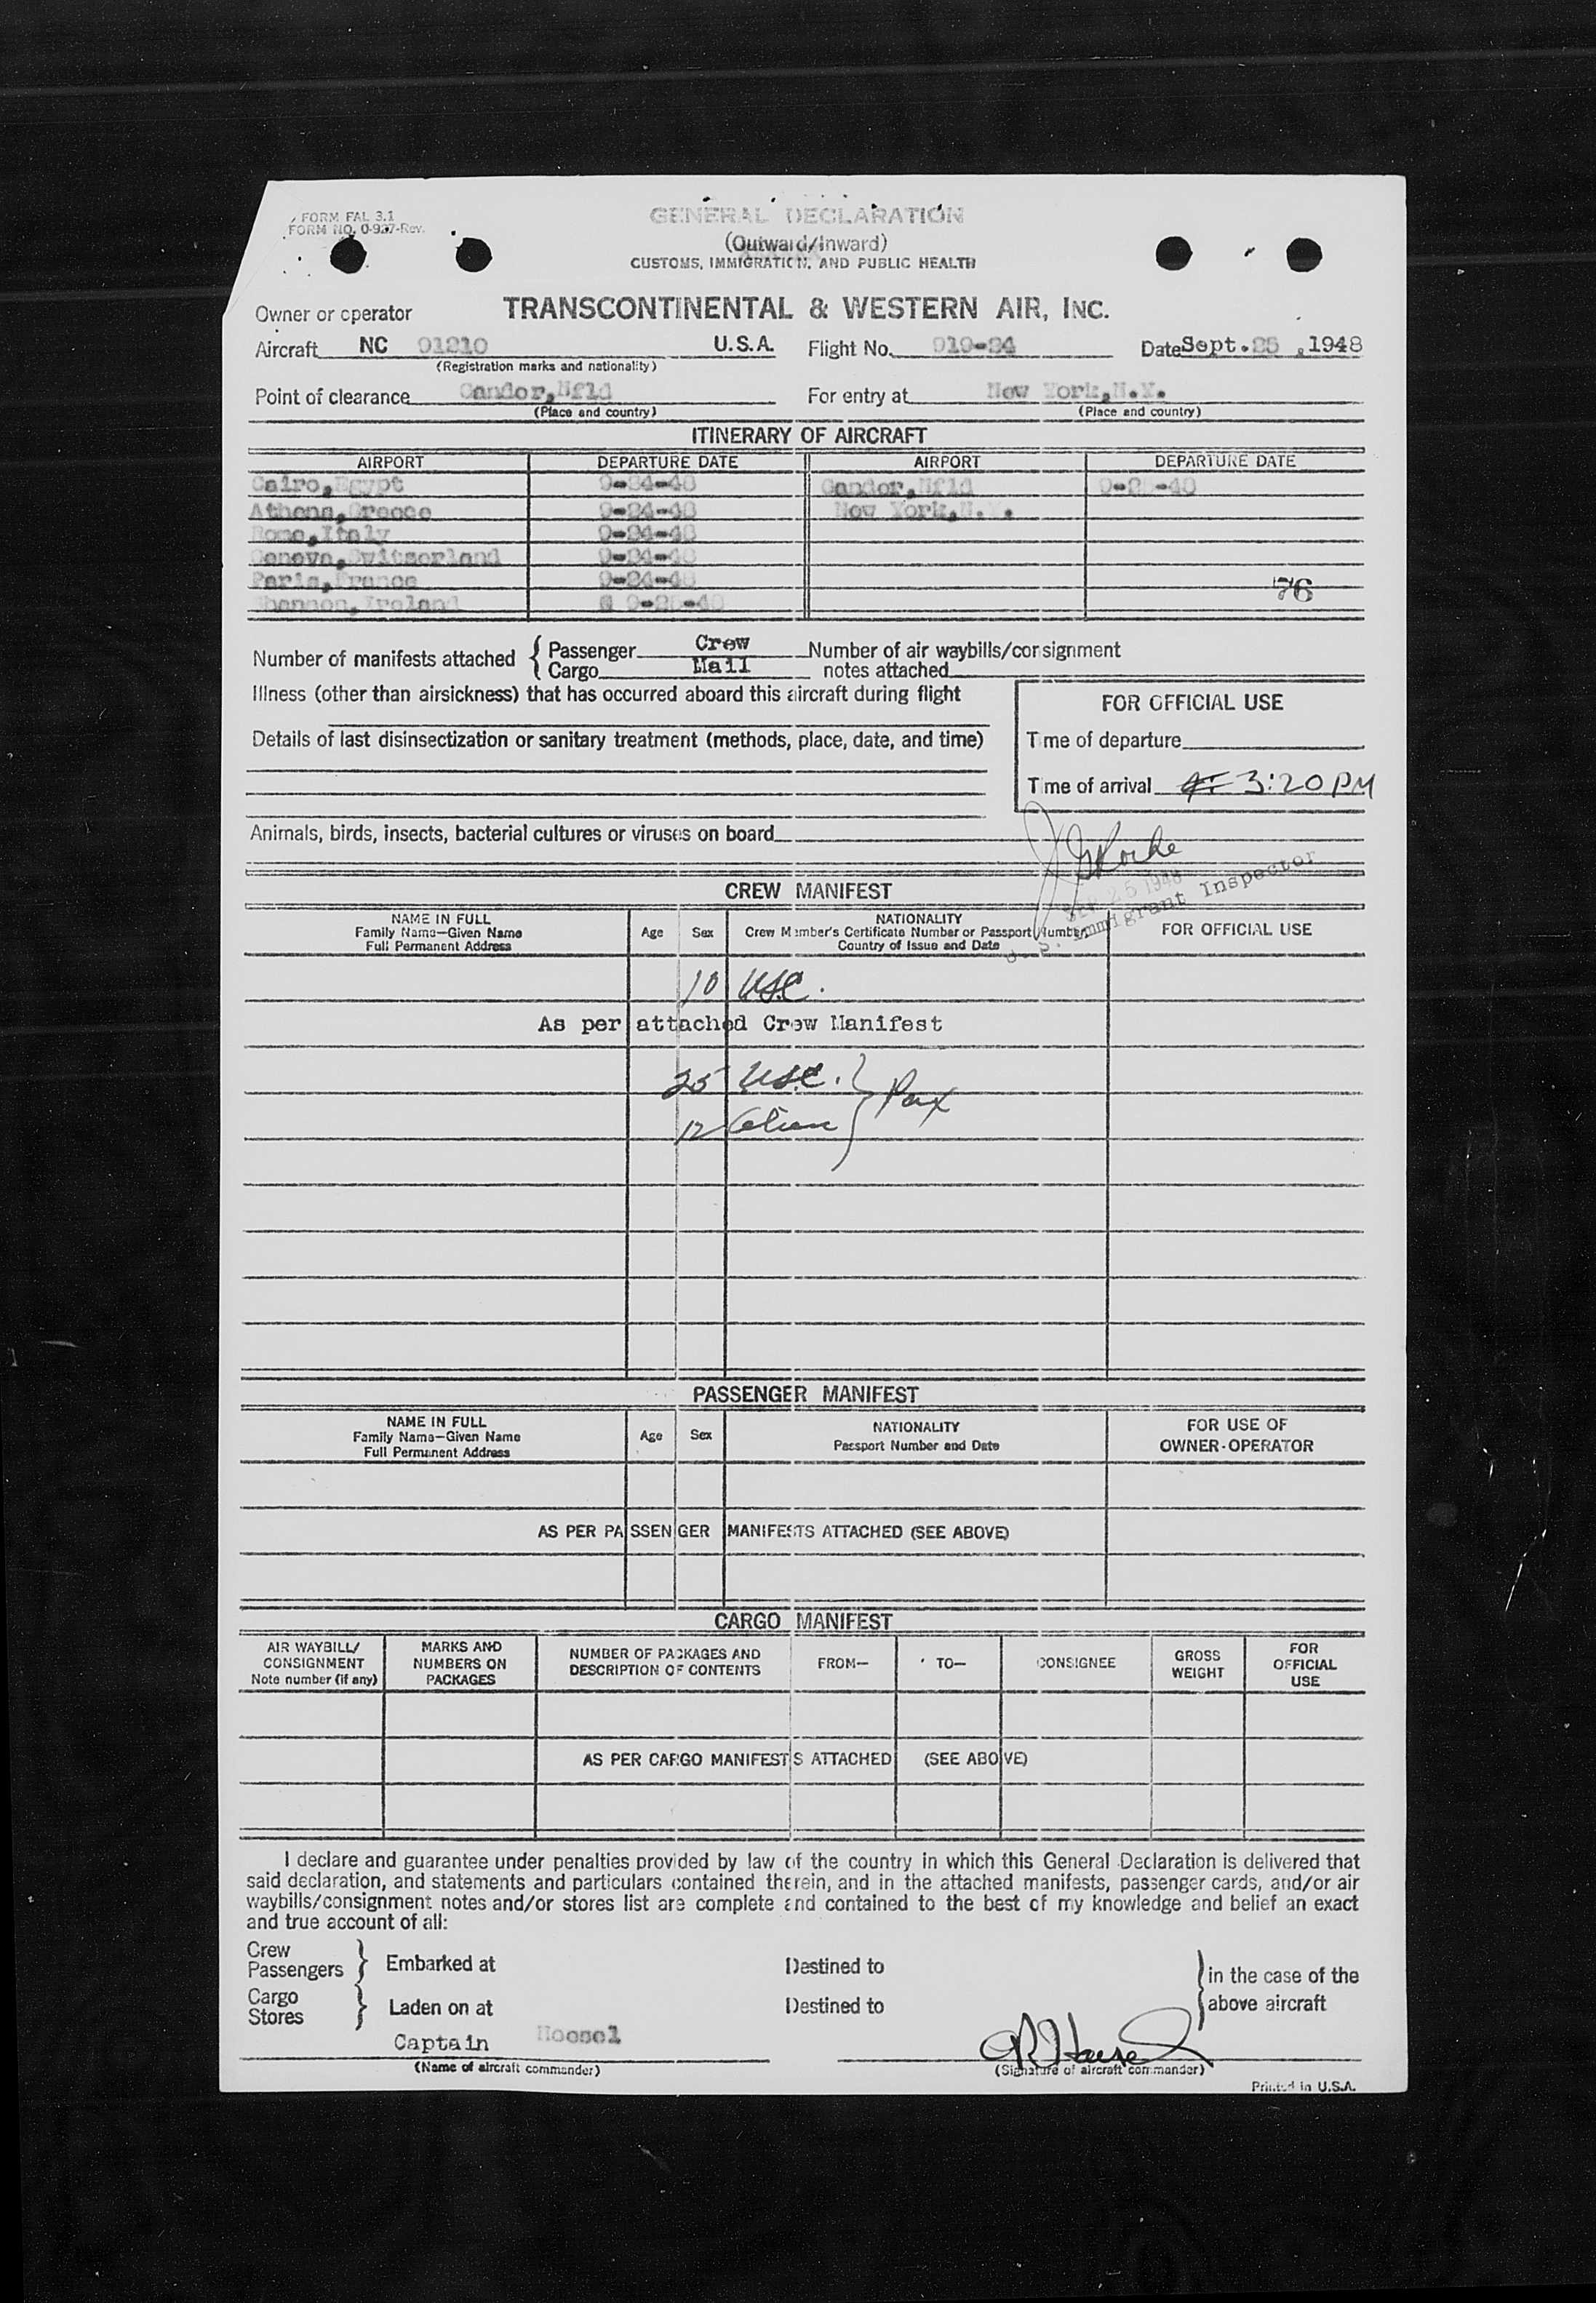 FORM FAL 3.1
FORM NO. 0-937-Rev.
GENERAL DECLARATION
(Outward/Inward)
CUSTOMS, IMMIGRATION, AND PUBLIC HEALTH
Owner or operator TRANSCONTINENTAL & WESTERN AIR, INC.
Aircraft NC 91210 U.S.A. Flight No. 919-24 Date Sept. 25, 1948
(Registration marks and nationality)
Point of clearance Gander, Nfld For entry at New York, N.Y.
(Place and country) (Place and country)
ITINERARY OF AIRCRAFT
AIRPORT DEPARTURE DATE AIRPORT DEPARTURE DATE
Cairo, Egypt 9-24-48 Gander, Nfld 9-25-48
Athens, Greece 9-24-48 New York, N.Y.
Rome, Italy 9-24-48
Geneva, Switzerland 9-24-48
Paris, France 9-24-48 76
Shannon, Ireland 9-25-48
Number of manifests attached { Passenger Crew Number of air waybills/consignment
Cargo Mail notes attached
Illness (other than airsickness) that has occurred aboard this aircraft during flight
FOR OFFICIAL USE
Details of last disinsectization or sanitary treatment (methods, place, date, and time)
Time of departure
Time of arrival 3:20 PM
Animals, birds, insects, bacterial cultures or viruses on board
SEP 25 1948
U. S. Immigrant Inspector
CREW MANIFEST
NAME IN FULL
Family Name—Given Name
Full Permanent Address
Age Sex
NATIONALITY
Crew Member's Certificate Number or Passport Number
Country of Issue and Date
FOR OFFICIAL USE
10 USC.
As per attached Crew Manifest
25 USC. } Pax
12 Alien
PASSENGER MANIFEST
NAME IN FULL
Family Name—Given Name
Full Permanent Address
Age Sex
NATIONALITY
Passport Number and Date
FOR USE OF
OWNER-OPERATOR
AS PER PASSENGER MANIFESTS ATTACHED (SEE ABOVE)
CARGO MANIFEST
AIR WAYBILL/
CONSIGNMENT
Note number (if any)
MARKS AND
NUMBERS ON
PACKAGES
NUMBER OF PACKAGES AND
DESCRIPTION OF CONTENTS
FROM—
TO—
CONSIGNEE
GROSS
WEIGHT
FOR
OFFICIAL
USE
AS PER CARGO MANIFESTS ATTACHED (SEE ABOVE)
I declare and guarantee under penalties provided by law of the country in which this General Declaration is delivered that
said declaration, and statements and particulars contained therein, and in the attached manifests, passenger cards, and/or air
waybills/consignment notes and/or stores list are complete and contained to the best of my knowledge and belief an exact
and true account of all:
Crew
Passengers } Embarked at Destined to
Cargo
Stores } Laden on at Destined to
} in the case of the
above aircraft
Captain
(Name of aircraft commander) (Signature of aircraft commander)
Printed in U.S.A.